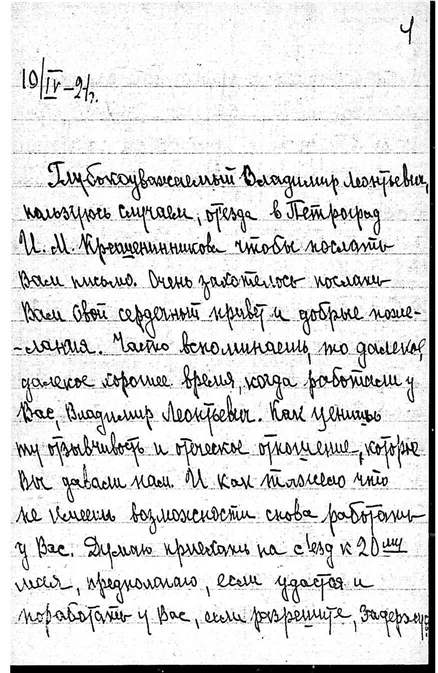 4
19/IV–21г.
Глубокоуважаемый Владимир Леонтьевич,
пользуюсь случаем, отезда в Петроград
И. М. Крашенинникова чтобы послать
Вам письмо. Очень захотелось послать
Вам свой сердечный привет и добрые поже-
-лания. Часто вспоминаешь, то далекое,
далекое хорошее время, когда работали у
Вас, Владимир Леонтьевич. Как ценишь
ту отзывчивость и отеческое отношение, которые
Вы давали нам. И как тяжело что
не имеешь возможности снова работать
у Вас. Думаю приехать на с'езд к 20му
мая, предполагаю, если удастся и
поработать у Вас, если разрешите, задержусь